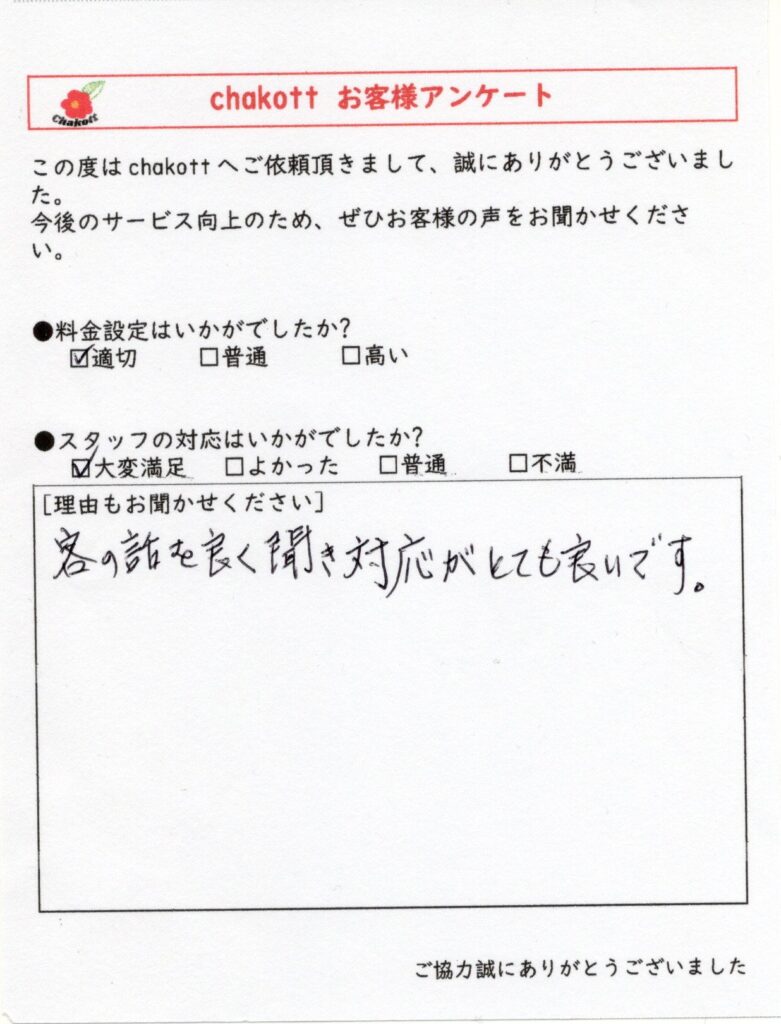 Chakott
chakott お客様アンケート
この度はchakottへご依頼頂きまして、誠にありがとうございまし
た。
今後のサービス向上のため、ぜひお客様の声をお聞かせくださ
い。
●料金設定はいかがでしたか?
☑適切 □普通 □高い
●スタッフの対応はいかがでしたか?
☑大変満足 □よかった □普通 □不満
[理由もお聞かせください]
客の話を良く聞き対応がとても良いです。
ご協力誠にありがとうございました